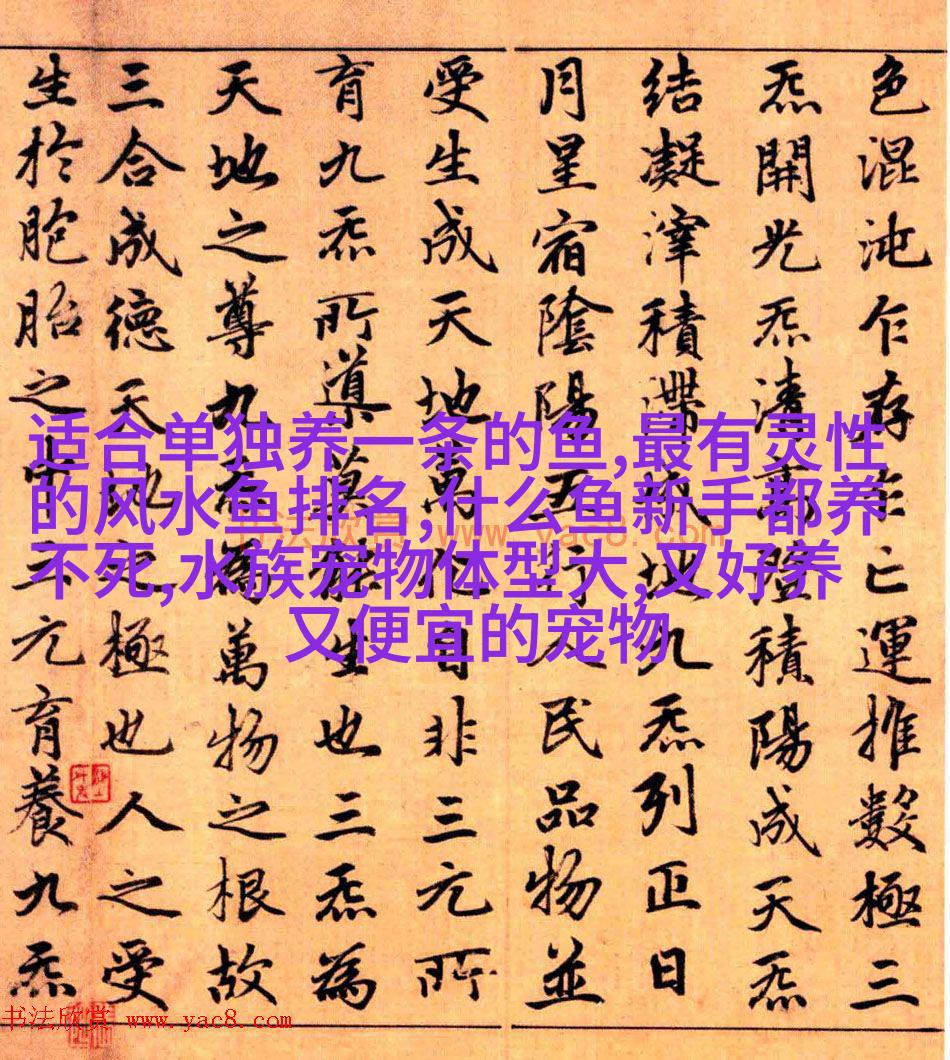 色混沌乍存乍亡運推數極三
炁開光炁清高澄積陽成天炁
結凝滓積滯地九炁列正日
月星宿陰陽五行人民品物並
受生成天地萬化自非三元所
育九炁所導莫能生也三炁為
天地之尊九炁為萬物之根故
三合成德天地之極也人之受
生於胞胎之中三元育養九炁
适合单独养一条的鱼,最有灵性
的风水鱼排名,什么鱼新手都养
不死,水族宠物体型大,又好养
又便宜的宠物
书法欣赏 www.yac8.com
书法欣赏 www.yac8.com